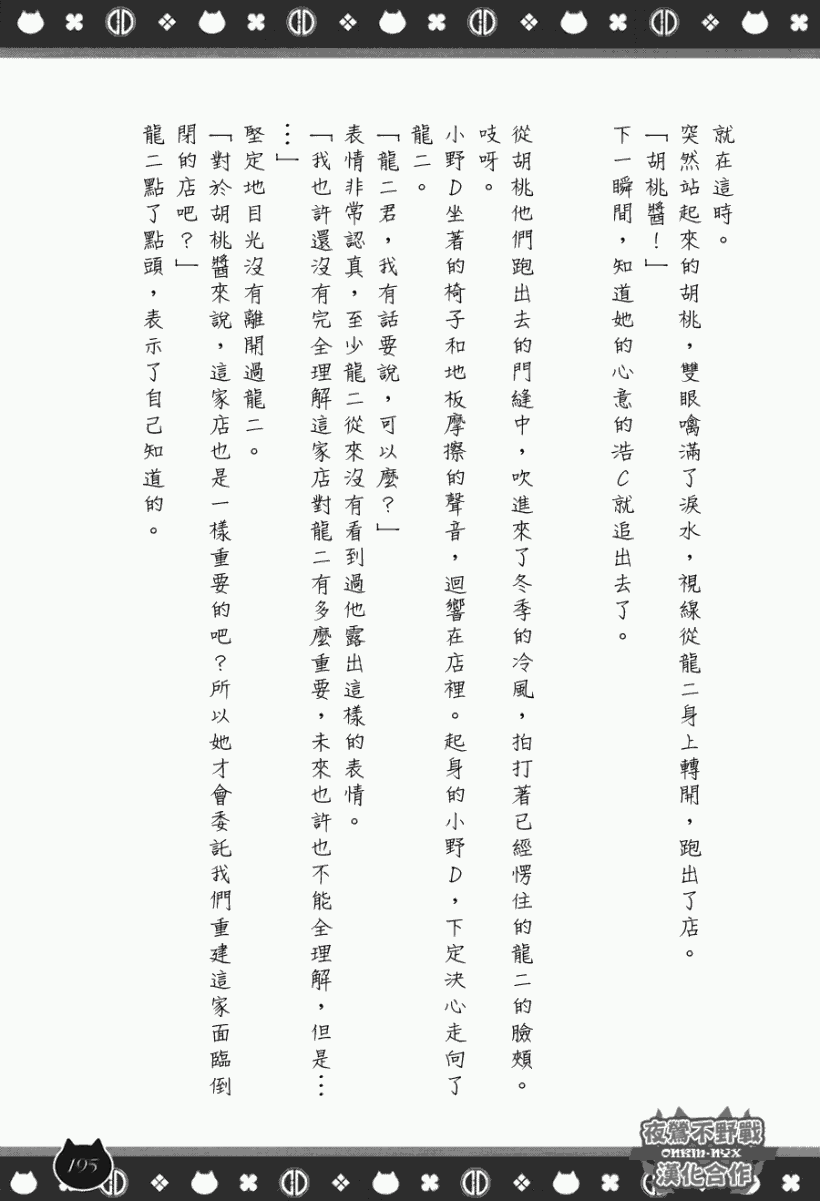 就在這時。
突然站起來的胡桃，雙眼噙滿了淚水，視線從龍二身上轉開，跑出了店。
「胡桃醬！」
下一瞬間，知道她的心意的浩C就追出去了。
從胡桃他們跑出去的門縫中，吹進來了冬季的冷風，拍打著已經愣住的龍二的臉頰。
吱呀。
小野D坐著的椅子和地板摩擦的聲音，迴響在店裡。起身的小野D，下定決心走向了
龍二。
「龍二君，我有話要說，可以麼？」
表情非常認真，至少龍二從來沒有看到過他露出這樣的表情。
「我也許還沒有完全理解這家店對龍二有多麼重要，未來也許也不能全理解，但是…
…」
堅定地目光沒有離開過龍二。
「對於胡桃醬來說，這家店也是一樣重要的吧？所以她才會委託我們重建這家面臨倒
閉的店吧？」
龍二點了點頭，表示了自己知道的。
195
夜鶯不野戰
ONKM-NYX
漢化合作